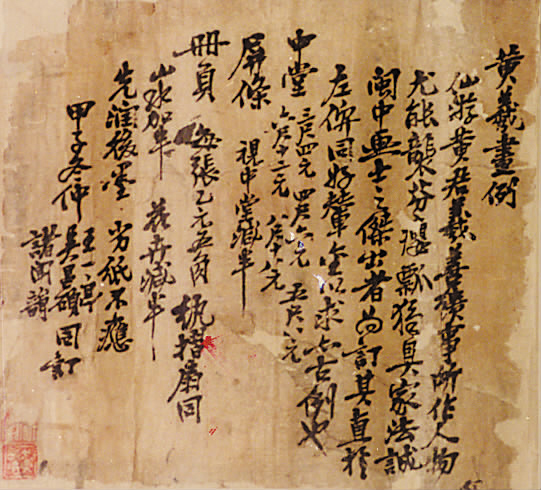 黄羲畫例
仙游黄君羲善繢事所作人物
尤能襲芬瘿瓢猶具家法誠
閩中士之傑出者為訂其直於
左俾同好輦金以求亦古例也
中堂 三尺四元 四尺六元 五尺八元
六尺十二元 八尺十八元
屏條 視中堂減半
册頁 每張乙元五角 紈摺扇同
山水加半 花卉減半
先润後墨 劣紙不應
甲子冬仲 王一亭
吳昌碩 同訂
諸聞韻